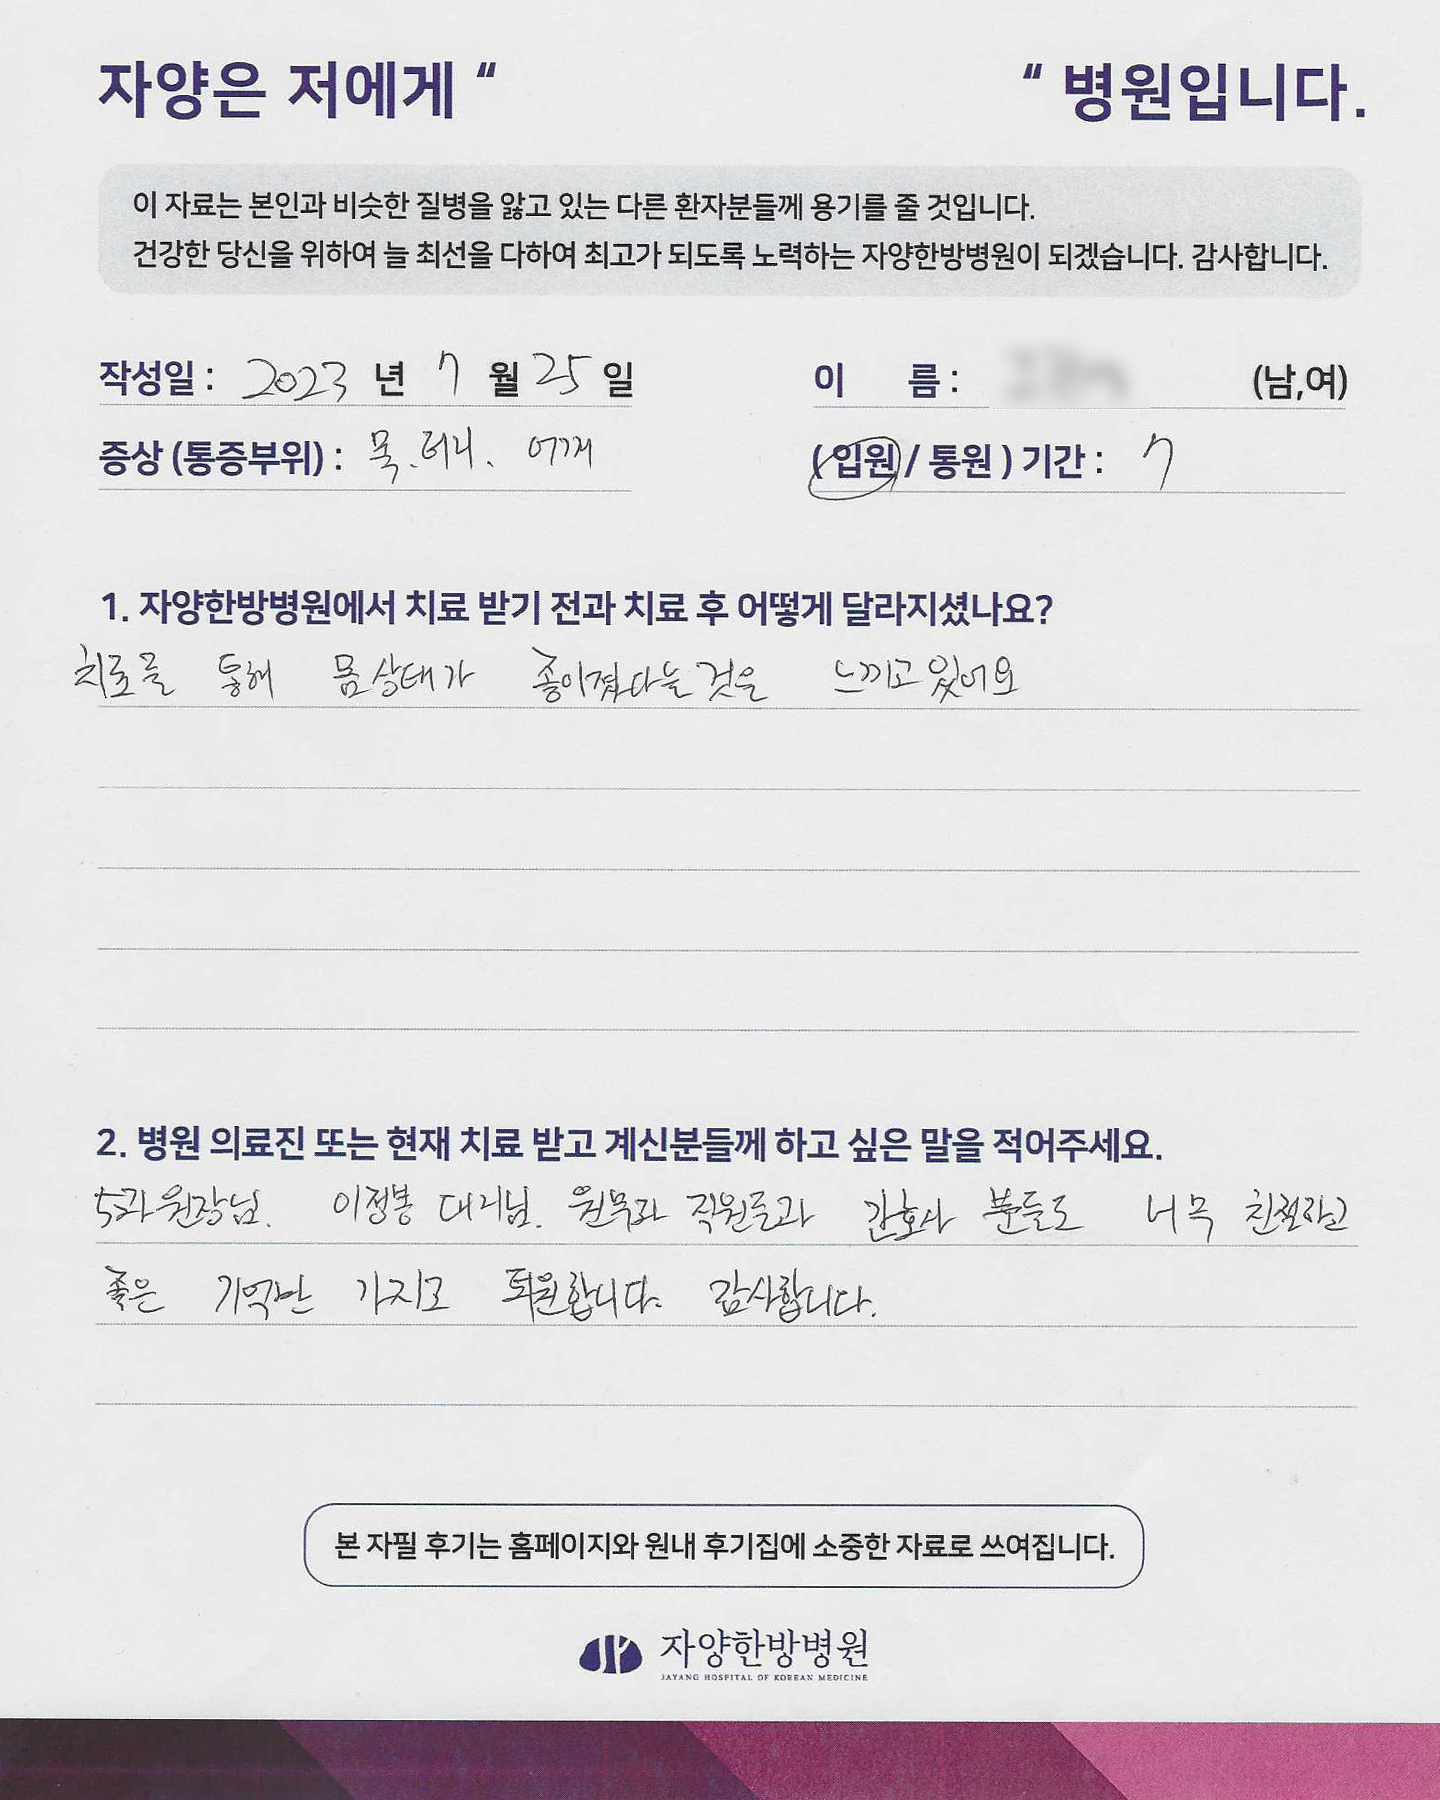 자양은 저에게 “ “ 병원입니다.
이 자료는 본인과 비슷한 질병을 앓고 있는 다른 환자분들께 용기를 줄 것입니다.
건강한 당신을 위하여 늘 최선을 다하여 최고가 되도록 노력하는 자양한방병원이 되겠습니다. 감사합니다.
작성일 : 2023 년 7 월 25 일 이 름 : (남,여)
증상 (통증부위) : 목. 허리. 어깨 ( 입원 / 통원 ) 기간 : 7
1. 자양한방병원에서 치료 받기 전과 치료 후 어떻게 달라지셨나요?
치료를 통해 몸상태가 좋아졌다는 것을 느끼고 있어요
2. 병원 의료진 또는 현재 치료 받고 계신분들께 하고 싶은 말을 적어주세요.
5과 원장님. 이정봉 대리님. 원무과 직원들과 간호사 분들도 너무 친절하고
좋은 기억만 가지고 퇴원합니다. 감사합니다.
본 자필 후기는 홈페이지와 원내 후기집에 소중한 자료로 쓰여집니다.
자양한방병원
JAYANG HOSPITAL OF KOREAN MEDICINE